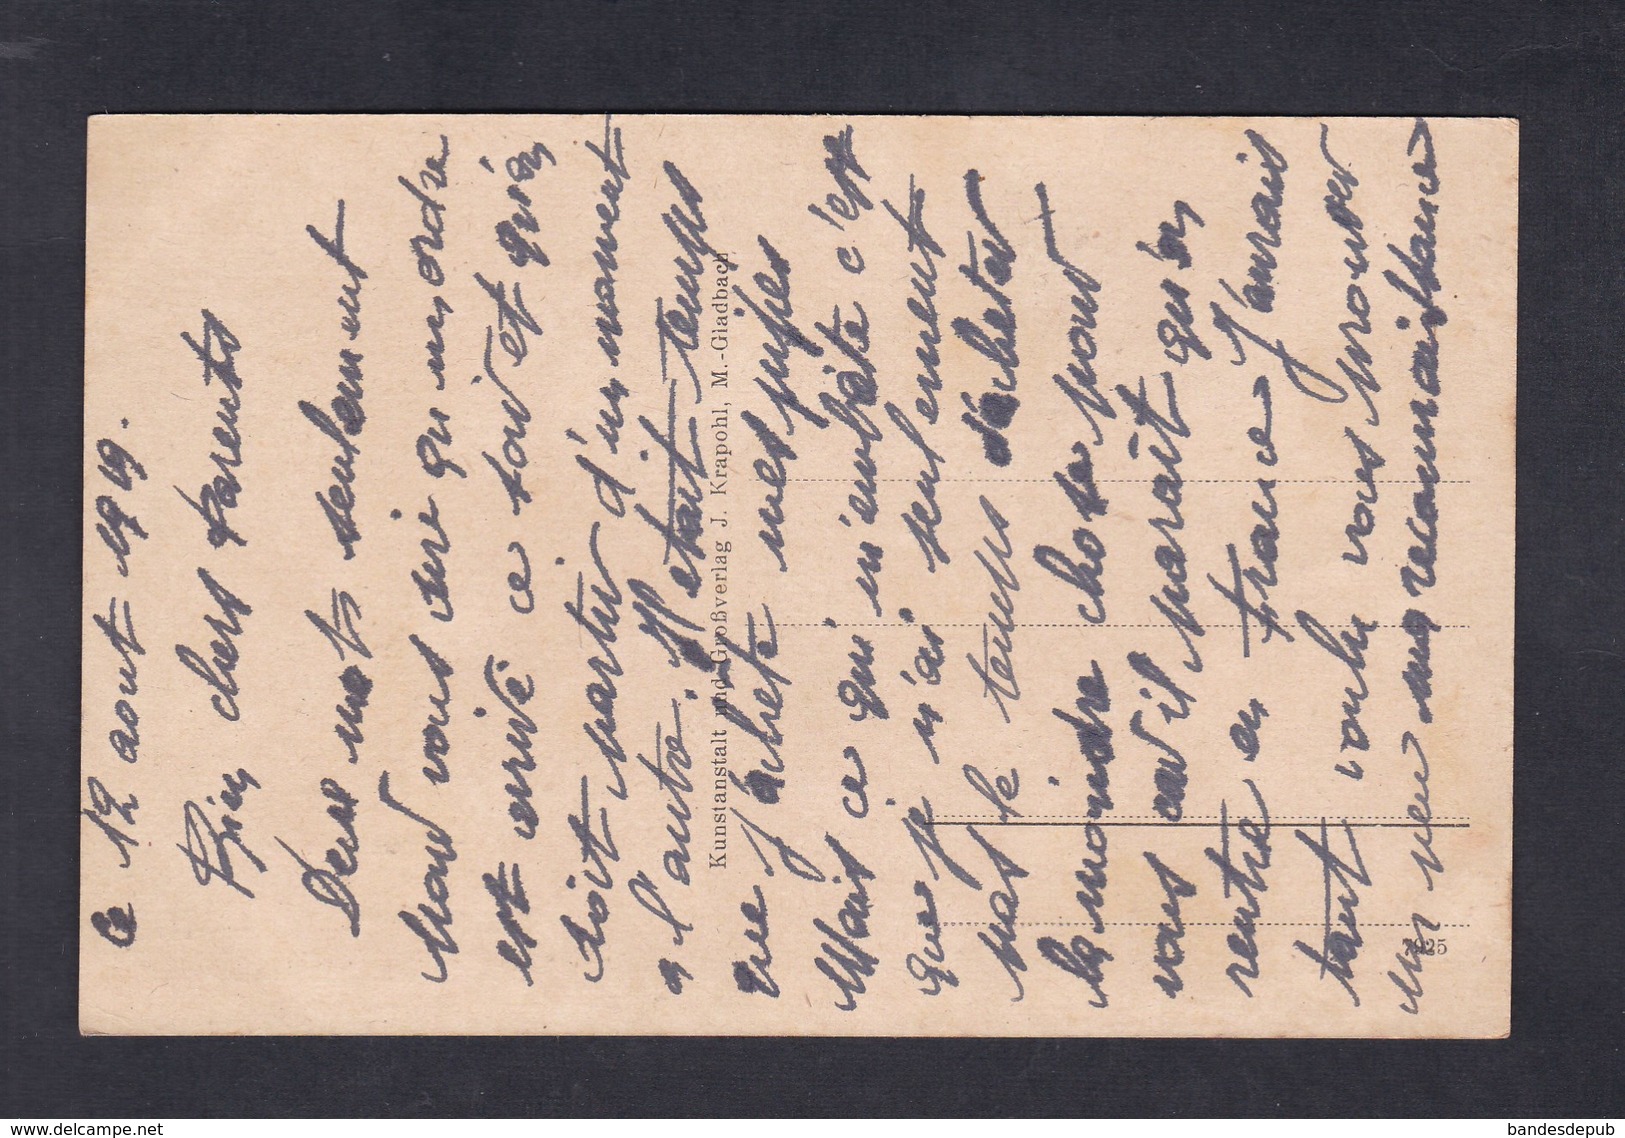 Le 12 aout 1919.
Bien chers Parents
Deux mots seulement
pour vous dire qu un ordre
est arrivé ce soir et qu'on
doit partir d'un moment
a l'autre. Il etait temps
que j'achete mes pipes
Mais ce qui m'embete c'est
que je n'ai seulement
pas le temps d'acheter
la moindre chose pour
vous car il parait qu'on
rentre en France J'aurais
tant voulu vous prouver
un peu ma reconnaissance
Kunstanstalt und Großverlag J. Krapohl, M.-Gladbach
7925
www.delcampe.net
bandesdepub